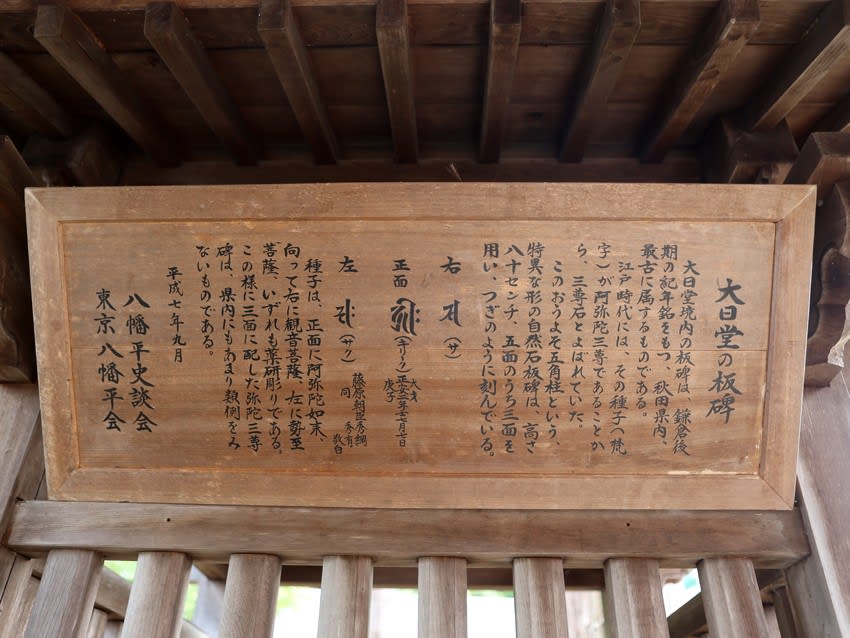 大日堂の板碑
大日堂境内の板碑は、鎌倉後
期の記年銘をもつ、秋田県内、
最古に属するものである。
江戸時代には、その種子(梵
字)が阿弥陀三尊であることか
ら、三尊石とよばれていた。
このおうよそ五角柱という、
特異な形の自然石板碑は、高さ
八十センチ、五面のうち三面を
用い、つぎのように刻んでいる。
右 (サ)
正面 (キリーク) 正安二年七月七日
大才
庚子
左 (サク) 藤原朝臣秀綱
同 秀有
敬白
種子は、正面に阿弥陀如来、
向って右に観音菩薩、左に勢至
菩薩、いずれも薬研彫りである。
この様に三面に配した弥陀三尊
碑は、県内にもあまり類例をみ
ないものである。
平成七年九月
八幡平史談会
東京八幡平会